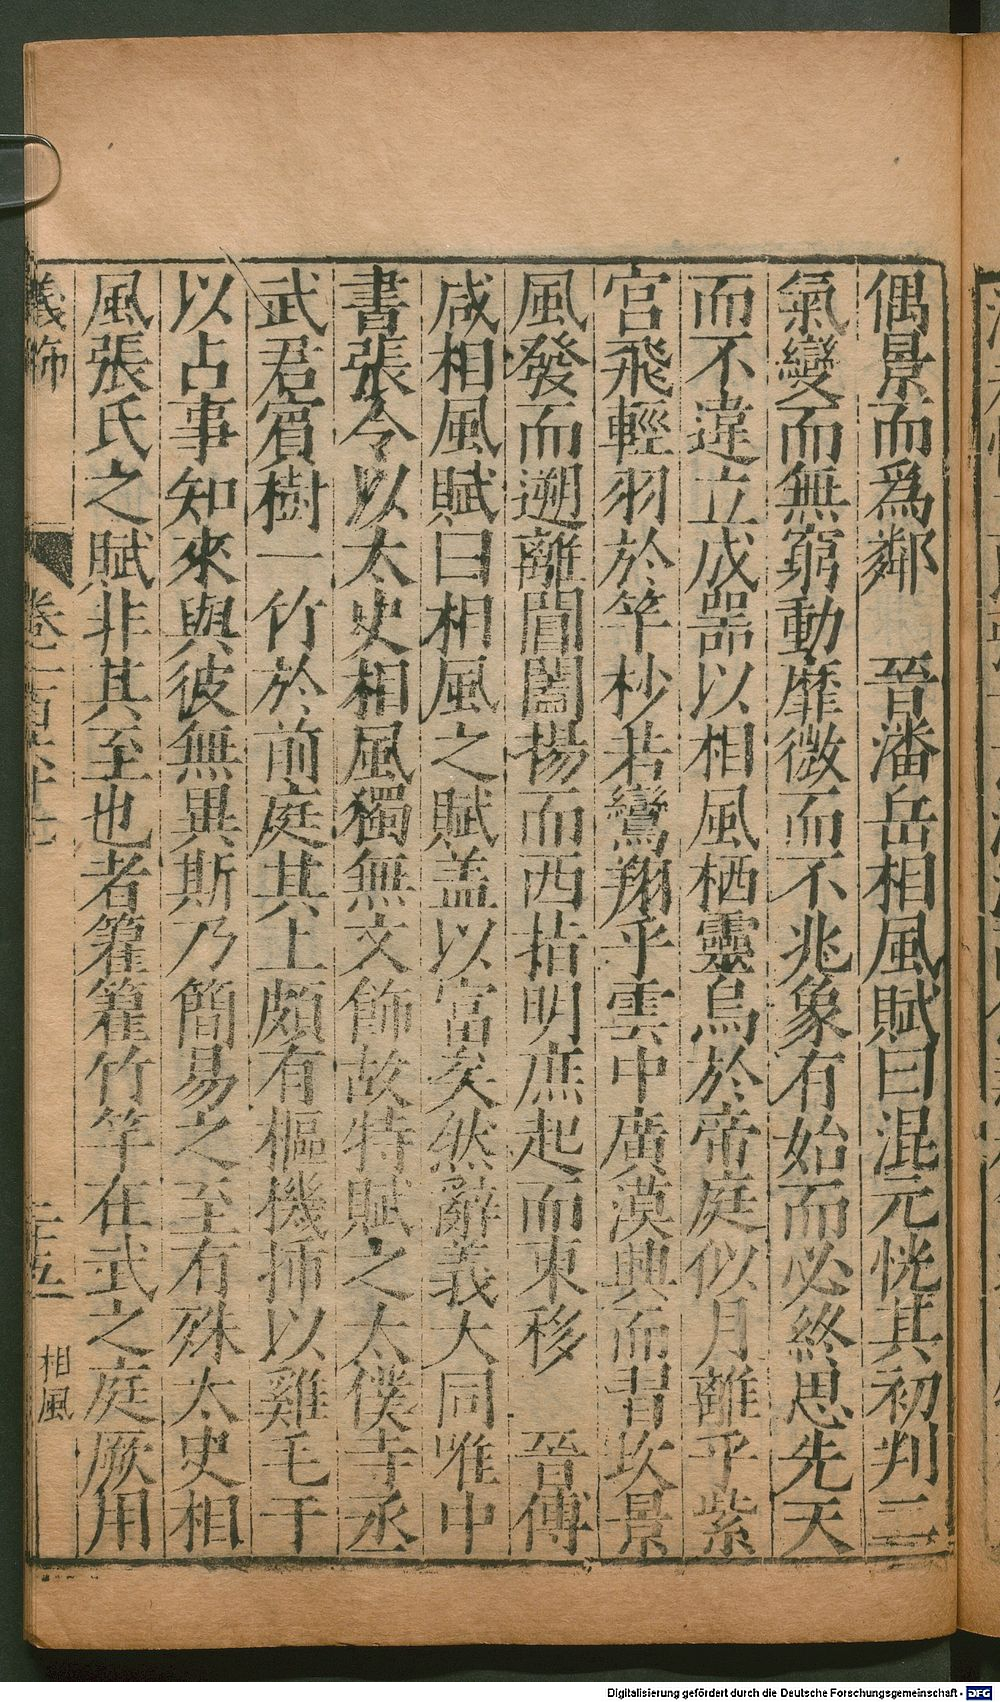 偶景而爲鄰　晉潘岳相風賦曰混元恍其初判二
氣變而無窮動靡微而不兆象有始而必終思先天
而不違立成器以相風栖靈烏於帝庭似月離乎紫
宫飛輕羽於竿杪若鸞翔乎雲中廣漠興而習坎景
風發而遡離閶闔揚而西指明庶起而東移　晉傅
咸相風賦曰相風之賦盖以富矣然辭義大同唯中
書張令以太史相風獨無文飾故特賦之太僕寺丞
武君賔樹一竹於前庭其上頗有樞機揷以雞毛于
以占事知來與彼無異斯乃簡易之至有殊太史相
風張氏之賦非其至也者籊籊竹竿在武之庭厥用
儀飾　卷一百六十七　二十五　相風
Digitalisierung gefördert durch die Deutsche Forschungsgemeinschaft - DFG